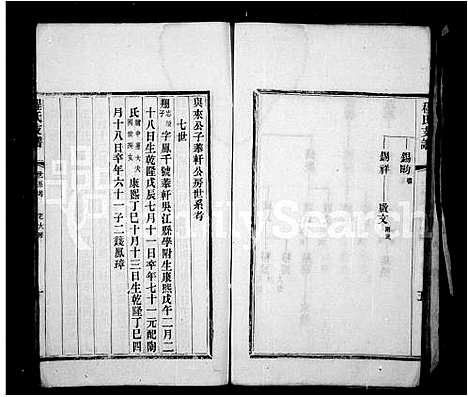 程氏支譜
錫助
錫祥
啟文
與京公子莘軒公房世系考
七世
字鳳千號莘軒吳江縣學附生康熙戊午二月二
十八日生乾隆戊辰七月十一日卒年七十一元配陶
氏 康熙丁巳十月十三日生乾隆丁巳四
月十八日卒年六十一子二錢鳳璋
程氏支譜
FamilySearch